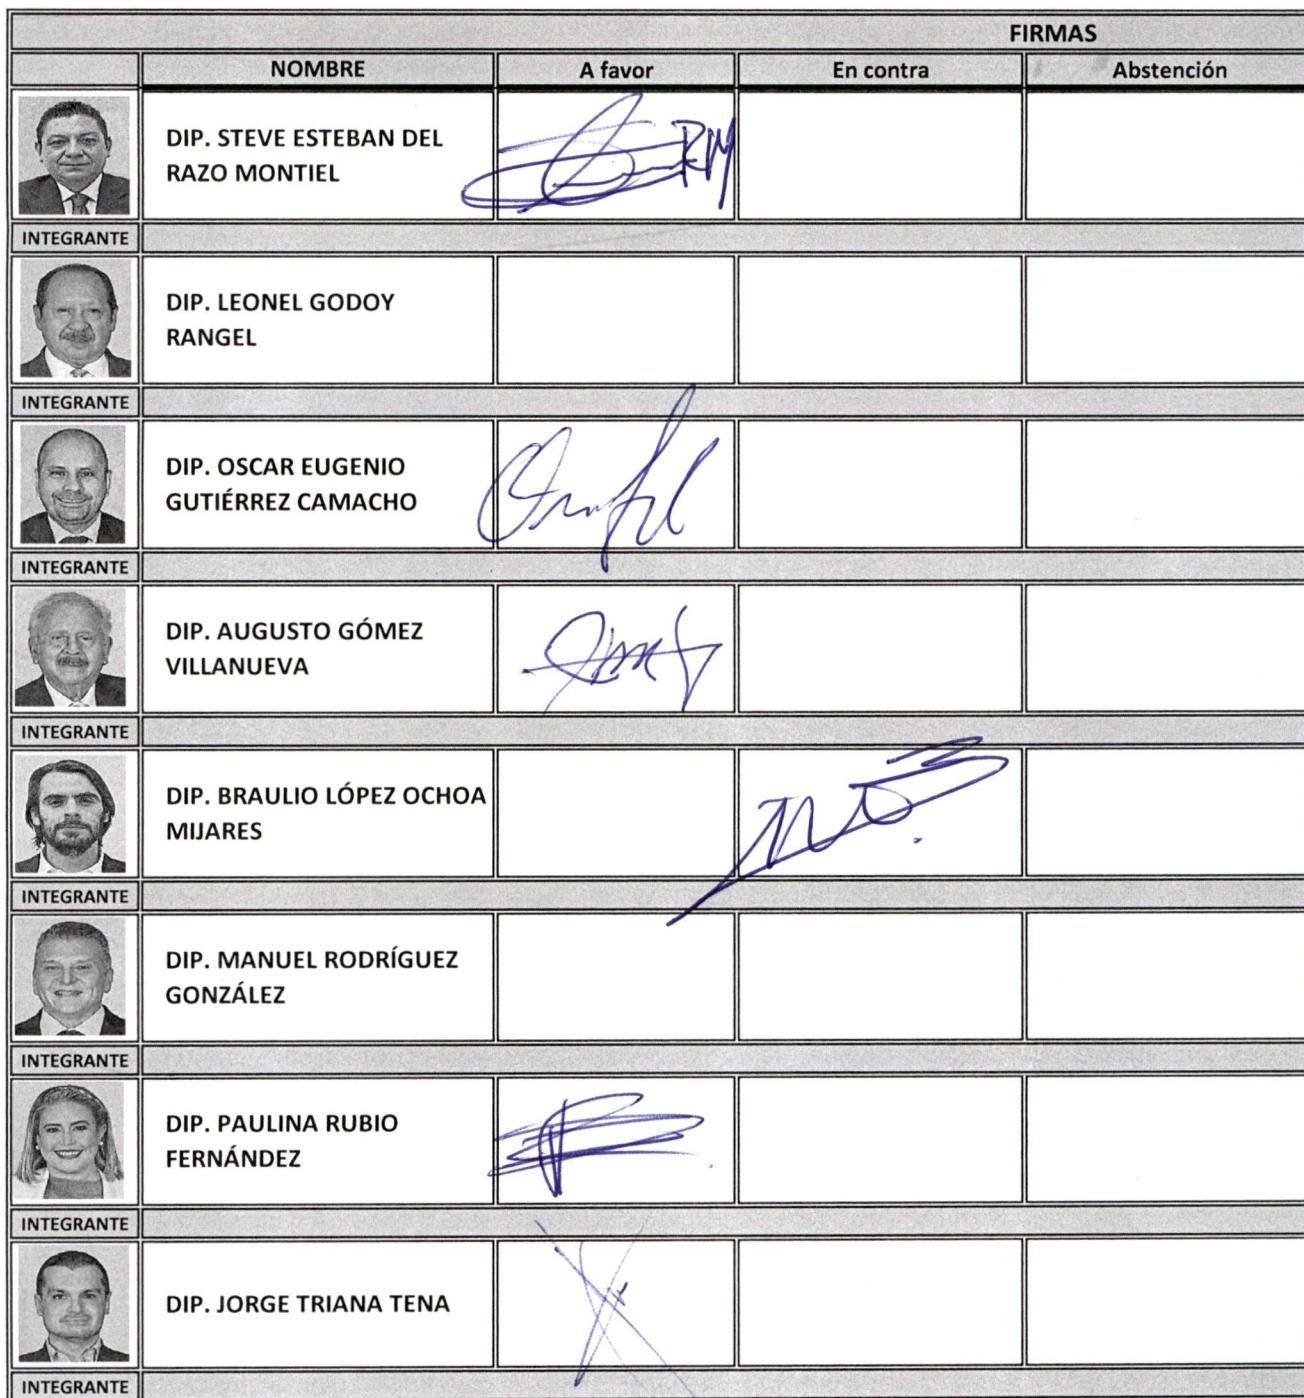 FIRMAS
NOMBRE A favor En contra Abstención
DIP. STEVE ESTEBAN DEL
RAZO MONTIEL
INTEGRANTE
DIP. LEONEL GODOY
RANGEL
INTEGRANTE
DIP. OSCAR EUGENIO
GUTIÉRREZ CAMACHO
INTEGRANTE
DIP. AUGUSTO GÓMEZ
VILLANUEVA
INTEGRANTE
DIP. BRAULIO LÓPEZ OCHOA
MIJARES
INTEGRANTE
DIP. MANUEL RODRÍGUEZ
GONZÁLEZ
INTEGRANTE
DIP. PAULINA RUBIO
FERNÁNDEZ
INTEGRANTE
DIP. JORGE TRIANA TENA
INTEGRANTE